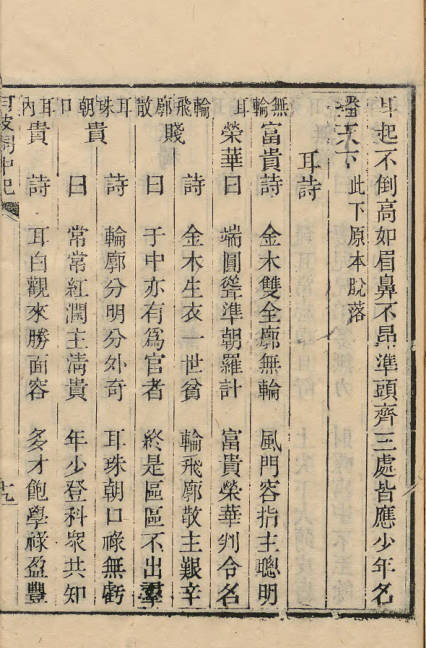 耳起不倒高如眉鼻不昂準頭齊三處皆應少年名
蓋天下 此下原本脫落
耳詩
無輪耳
富貴詩 金木雙全廓無輪 風門容指主聰明
榮華曰 端圓聳準朝羅計 富貴榮華判合名
輪飛廓散
賤
詩 金木生衣一世貧 輪飛廓散主艱辛
曰 于中亦有爲官者 終是區區不出羣
耳珠朝口
貴
詩 輪廓分明分外奇 耳珠朝口祿無虧
曰 常常紅潤主清貴 年少登科眾共知
耳內
貴 詩 耳白觀來勝面容 多才飽學祿盈豐
月波洞中記 十九